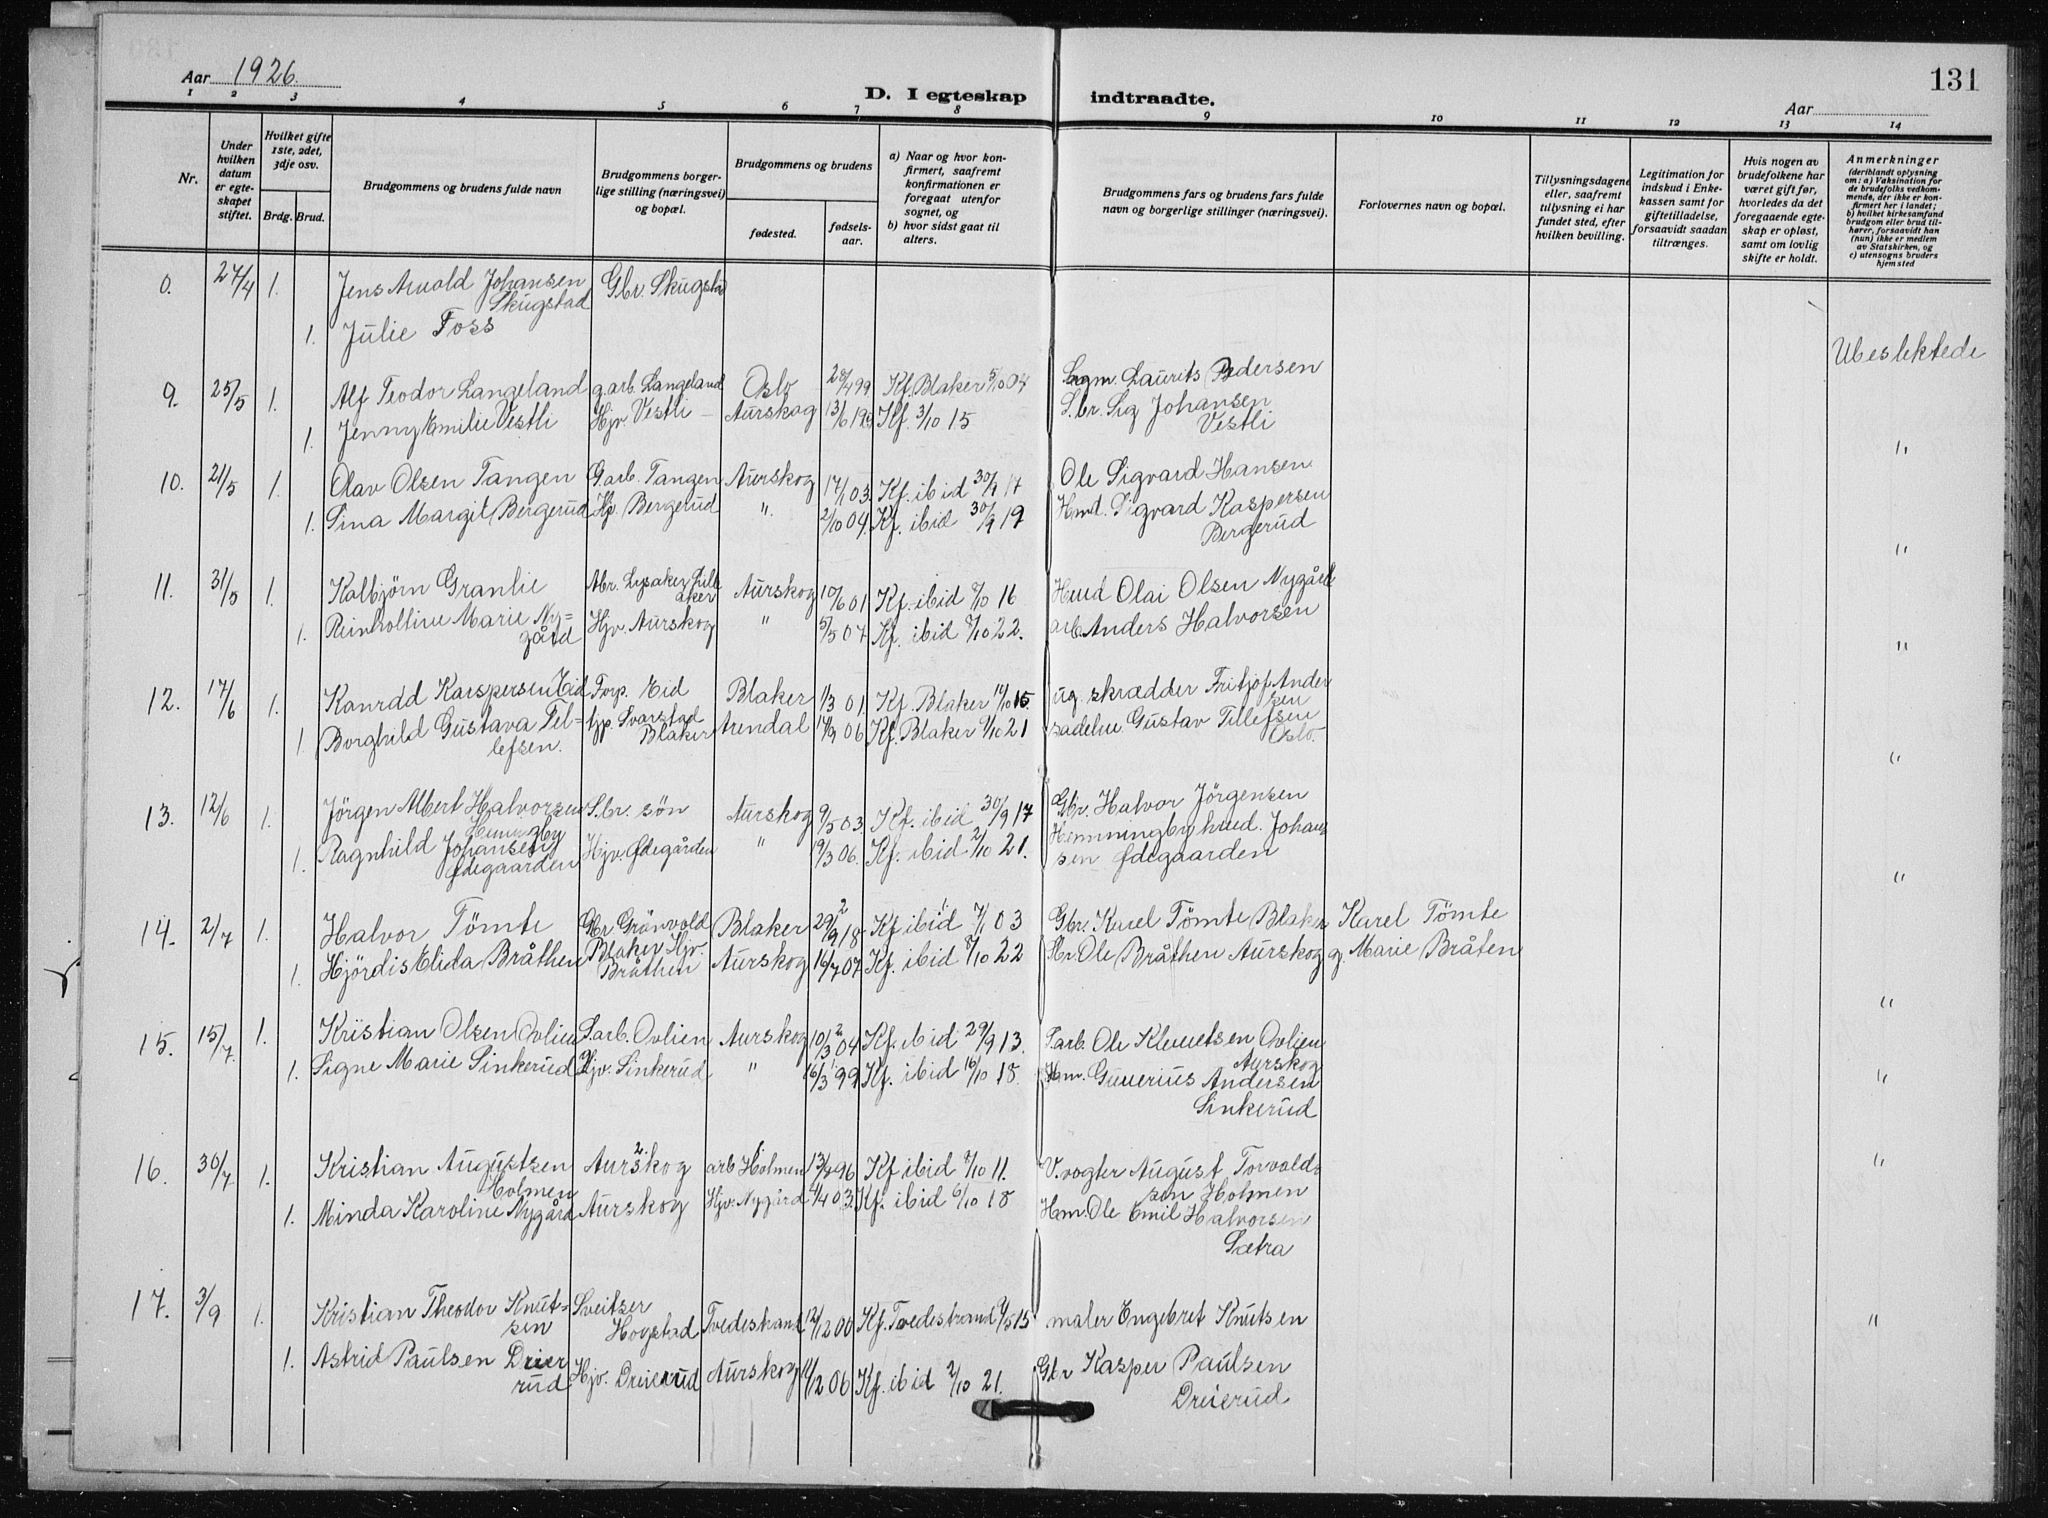 Aar 1926.
131
D. I egteskap indtraadte.
Aar
1 2 3 4 5 6 7 8 9 10 11 12 13 14
Nr.
Under hvilken datum er egteskapet stiftet.
Hvilket gifte 1ste, 2det, 3dje osv.
Brdg. Brud.
Brudgommens og brudens fulde navn
Brudgommens borgerlige stilling (næringsvei) og bopæl.
Brudgommens og brudens
fødested.
fødselsaar.
a) Naar og hvor konfirmert, saafremt konfirmationen er foregaat utenfor sognet, og
b) hvor sidst gaat til alters.
Brudgommens fars og brudens fars fulde navn og borgerlige stillinger (næringsvei).
Forlovernes navn og bopæl.
Tillysningsdagene eller, saafremt tillysning ei har fundet sted, efter hvilken bevilling.
Legitimation for indskud i Enkekassen samt for giftetilladelse, forsaavidt saadan tiltrænges.
Hvis nogen av brudefolkene har været gift før, hvorledes da det foregaaende egteskap er opløst, samt om lovlig skifte er holdt.
Anmerkninger (deriblandt oplysning om: a) Vaksination for de brudefolks vedkommende, der ikke er konfirmert her i landet; b) hvilket kirkesamfund brudgom eller brud tilhører, forsaavidt han (hun) ikke er medlem av Statskirken, og c) utensogns bruders hjemsted
27/4 1. Jens Arvold Johansen Skugstad Gbr. Skugstad
1. Julie Foss
Ubeslektede
9. 25/5 1. Alf Teodor Langeland g.arb. Langeland Oslo 28/4 99 Kf. Blaker 5/10 Laurits Pedersen
1. Jenny Emilie Vestli Hjv. Vestli Aurskog 13/6 Kf. 3/10 15 Johansen Vestli
"
10. 21/5 1. Olav Olsen Tangen Garb. Tangen Aurskog 17/1 03. Kf. ibid 30/9 17 Ole Sigvard Hansen
1. Sina Margit Bergerud Hp. Bergerud " 2/10 04. Kf. ibid 30/9 19 Hmd. Sigvard Kaspersen Bergerud
"
11. 31/5 1. Kolbjørn Granlie Lysaker Lilleaker Aurskog 10/6 01 Kf. ibid 7/10 16 Hmd Olai Olsen Nygård
1. Reinholtine Marie Nygård Hjv. Aurskog " 5/5 07 Kf. ibid 8/10 22. arb Anders Halvorsen
"
12. 17/6 1. Kanrdd Karspersen Eid Forp. Eid Blaker 1/3 01. Kf. Blaker 14/10 15 skrædder Fritjof Andersen
1. Borghild Gustava Tellefsen. hjp. Svarstad Blaker Arendal 14/9 06 Kf. Blaker 9/10 21 Gustav Tillefsen Oslo.
"
13. 12/6 1. Jörgen Albert Halvorsen Hemingby S.br. søn Aurskog 9/5 03. Kf. ibid 30/9 17 Gbr. Halvor Jörgensen Hemmingby
1. Ragnhild Johansen Ødegaarden Hjv. Ødegården " 19/3 06. Kf. ibid 2/10 21. hmd. Johansen Ødegaarden
"
14. 2/7 1. Halvor Tömte Gbr Grönvold Blaker Blaker 29/9 18 Kf ibid 7/1 03 Gbr. Karel Tömte Blaker Karel Tömte
1. Hjördis Elida Bråthen Hjv. Bråthen Aurskog 16/7 07 Kf. ibid 8/10 22 Ole Bråthen Aurskog g. Marie Bråten
"
15. 15/7. 1. Kristian Olsen Ovlien S.arb. Ovlien Aurskog 10/3 04 Kf. ibid 29/9 13. S.arb. Ole Klemetsen Ovlien Aurskog
1. Signe Marie Sinkerud Hjv. Sinkerud " 16/3 99 Kf. ibid 16/10 18. Hm. Gunerius Andersen Sinkerud
"
16. 30/7 1. Kristian Augustsen Holmen Aurskog arb Holmen 13/4 96 Kf ibid 8/10 11. V.vogter August Torvaldsen Holmen
1. Minda Karoline Nygård Aurskog Hjv. Nygård 4/4 03. Kf. ibid 6/10 18 Hm. Ole Emil Halvorsen Sætra
"
17. 3/9 1. Kristian Theodor Knutsen Sveitser Hogstad Tvedestrand 12/12 00 Kf. Tvedestrand 9/5 15 maler Engebret Knutsen
1. Astrid Paulsen Dreierud Hjv. Dreierud Aurskog 11/12 06 Kf. ibid 2/10 21. Gbr Kasper Paulsen Dreierud
"